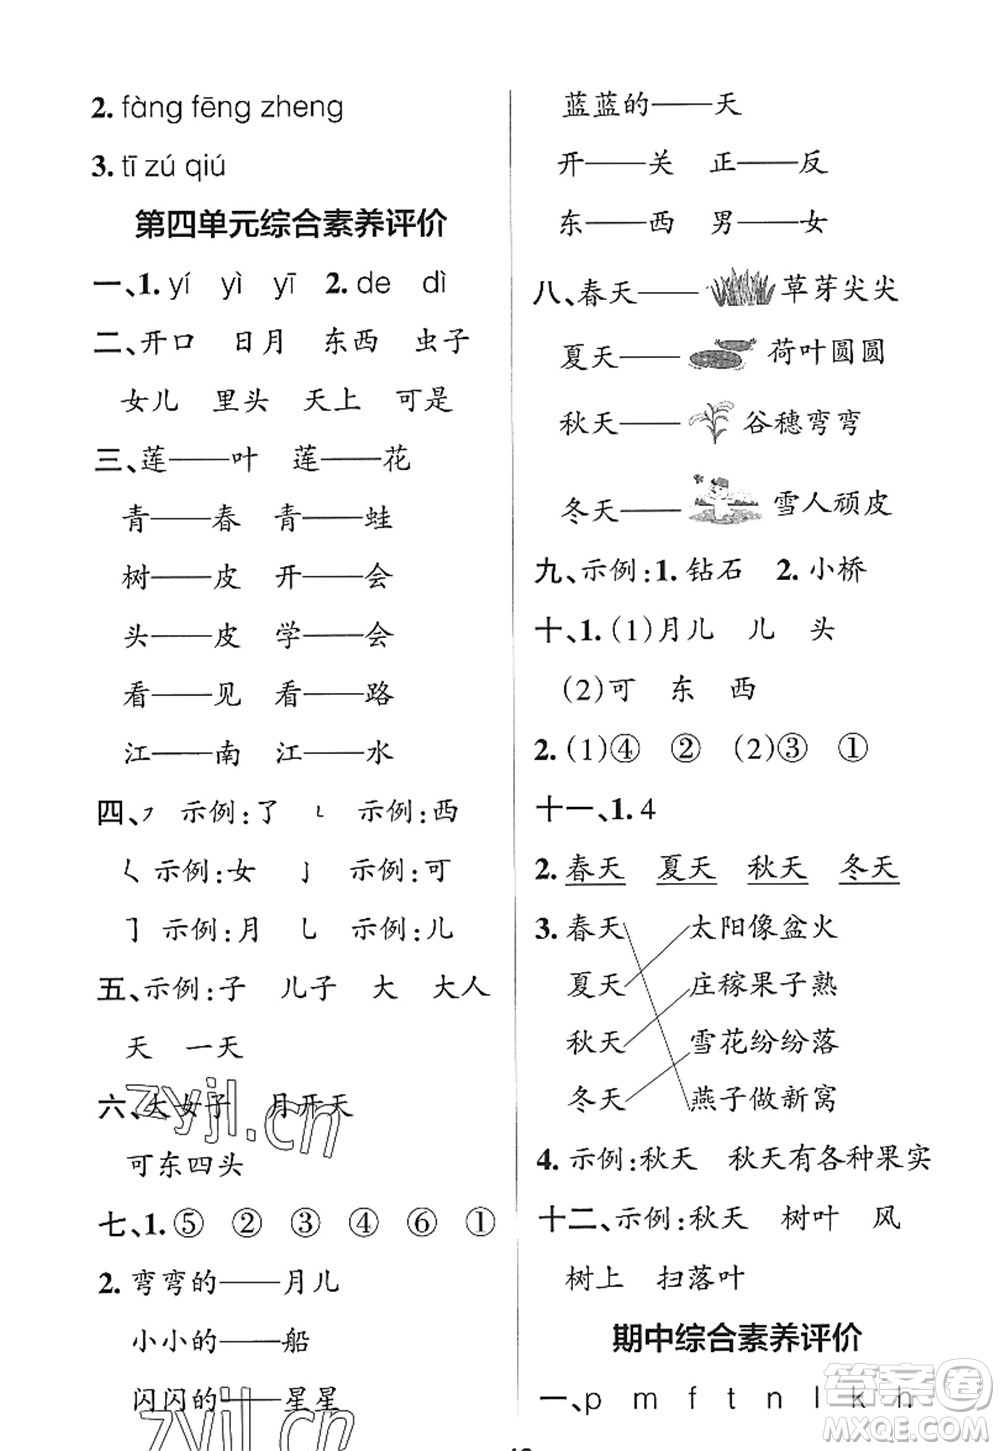 2. fàng fēng zheng
3. tī zú qiú
第四单元综合素养评价
一、1. yí yì yī 2. de dì
二、开口 日月 东西 虫子
女儿 里头 天上 可是
三、莲——叶 莲——花
青——春 青——蛙
树——皮 开——会
头——皮 学——会
看——见 看——路
江——南 江——水
四、㇇ 示例:了 ㇙ 示例:西
𡿨 示例:女 亅 示例:可
㇆ 示例:月 乚 示例:儿
五、示例:子 儿子 大 大人
天 一天
六、大女子 月开天
可东四头
七、1. ⑤ ② ③ ④ ⑥ ①
2. 弯弯的——月儿
小小的——船
闪闪的——星星
蓝蓝的——天
开——关 正——反
东——西 男——女
八、春天—— 草芽尖尖
夏天—— 荷叶圆圆
秋天—— 谷穗弯弯
冬天—— 雪人顽皮
九、示例:1. 钻石 2. 小桥
十、1. (1)月儿 儿 头
(2)可 东 西
2. (1)④ ② (2)③ ①
十一、1. 4
2. 春天 夏天 秋天 冬天
3. 春天 太阳像盆火
夏天 庄稼果子熟
秋天 雪花纷纷落
冬天 燕子做新窝
4. 示例:秋天 秋天有各种果实
十二、示例:秋天 树叶 风
树上 扫落叶
期中综合素养评价
一、p m f t n l k h
zyjl.cn
zyjl.cn
答案圈
MXQE.COM